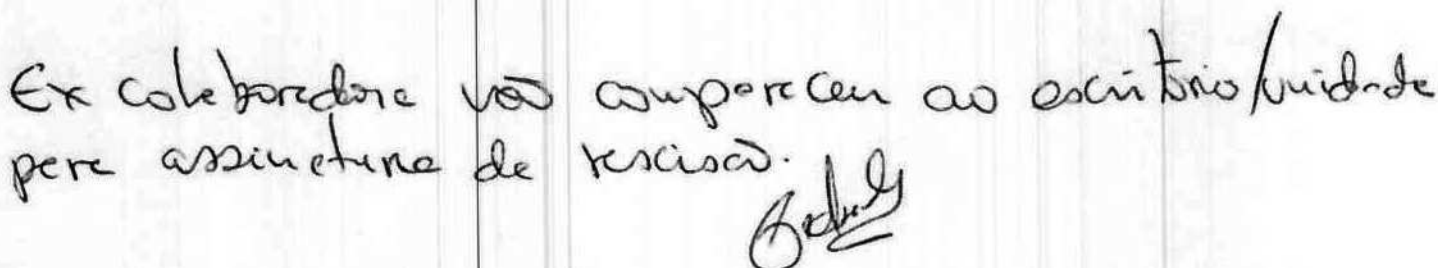 Ex colaboradora não compareceu ao escritório/unidade
para assinatura da rescisão.